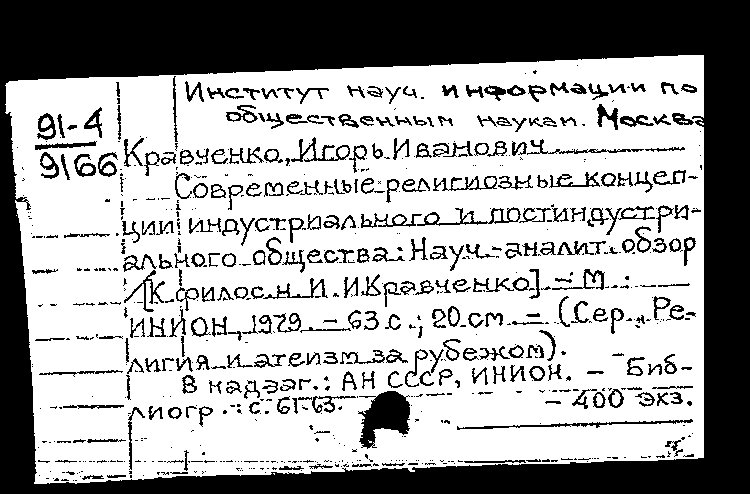 Институт науч. информации по
общественным наукам. Москва
91-4
9166
Кравченко, Игорь Иванович
Современные религиозные концеп-
ции индустриального и постиндустри-
ального общества: Науч.-аналит. обзор
/[К. филос. н. И. И. Кравченко] - М.:
ИНИОН, 1979. - 63 с.; 20 см. - (Сер. "Ре-
лигия и атеизм за рубежом).
В надзаг.: АН СССР, ИНИОН. - Биб-
лиогр.: с. 61-63. - 400 экз.